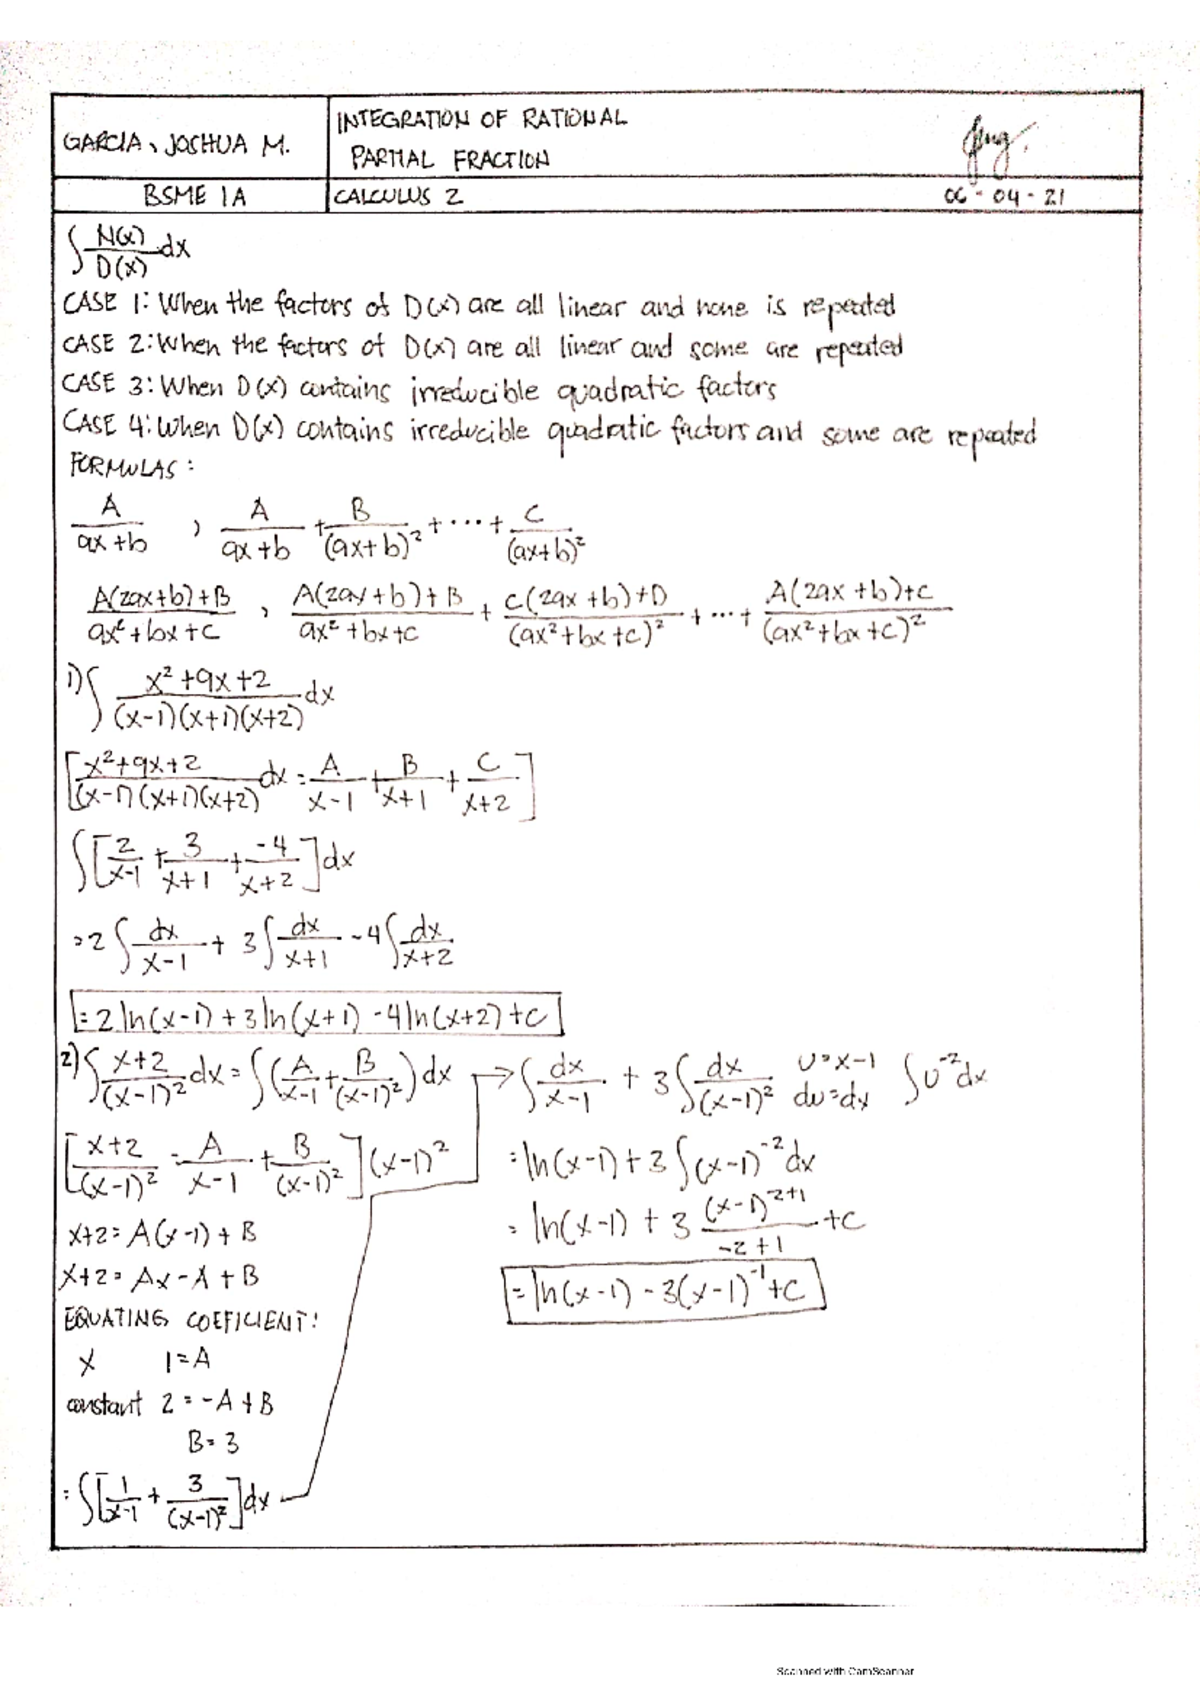 GARCIA, JOSHUA M.
INTEGRATION OF RATIONAL
PARTIAL FRACTION
BSME 1A
CALCULUS 2
06-04-21
∫ N(x)/D(x) dx
CASE 1: When the factors of D(x) are all linear and none is repeated
CASE 2: When the factors of D(x) are all linear and some are repeated
CASE 3: When D(x) contains irreducible quadratic factors
CASE 4: When D(x) contains irreducible quadratic factors and some are repeated
FORMULAS:
A/(ax+b) , A/(ax+b) + B/(ax+b)² + ... + C/(ax+b)²
(A(2ax+b)+B)/(ax²+bx+c) , (A(2ax+b)+B)/(ax²+bx+c) + (C(2ax+b)+D)/(ax²+bx+c)² + ... + (A(2ax+b)+C)/(ax²+bx+c)²
1) ∫ (x²+9x+2)/((x-1)(x+1)(x+2)) dx
[(x²+9x+2)/((x-1)(x+1)(x+2)) dx = A/(x-1) + B/(x+1) + C/(x+2)]
∫[2/(x-1) + 3/(x+1) + -4/(x+2)] dx
=2∫ dx/(x-1) + 3∫ dx/(x+1) - 4∫ dx/(x+2)
=2ln(x-1)+3ln(x+1)-4ln(x+2)+C
2) ∫ (x+2)/(x-1)² dx = ∫(A/(x-1) + B/(x-1)²) dx
[(x+2)/(x-1)² = A/(x-1) + B/(x-1)²](x-1)²
x+2=A(x-1)+B
x+2=Ax-A+B
EQUATING COEFICIENT:
x 1=A
constant 2=-A+B
B=3
=∫[1/(x-1) + 3/(x-1)²]dx
→ ∫ dx/(x-1) + 3∫ dx/(x-1)² u=x-1 du=dx ∫u⁻²dx
=ln(x-1)+3∫(x-1)⁻²dx
=ln(x-1)+3 (x-1)⁻²⁺¹/(-2+1) +C
=ln(x-1)-3(x-1)⁻¹+C
Scanned with CamScanner